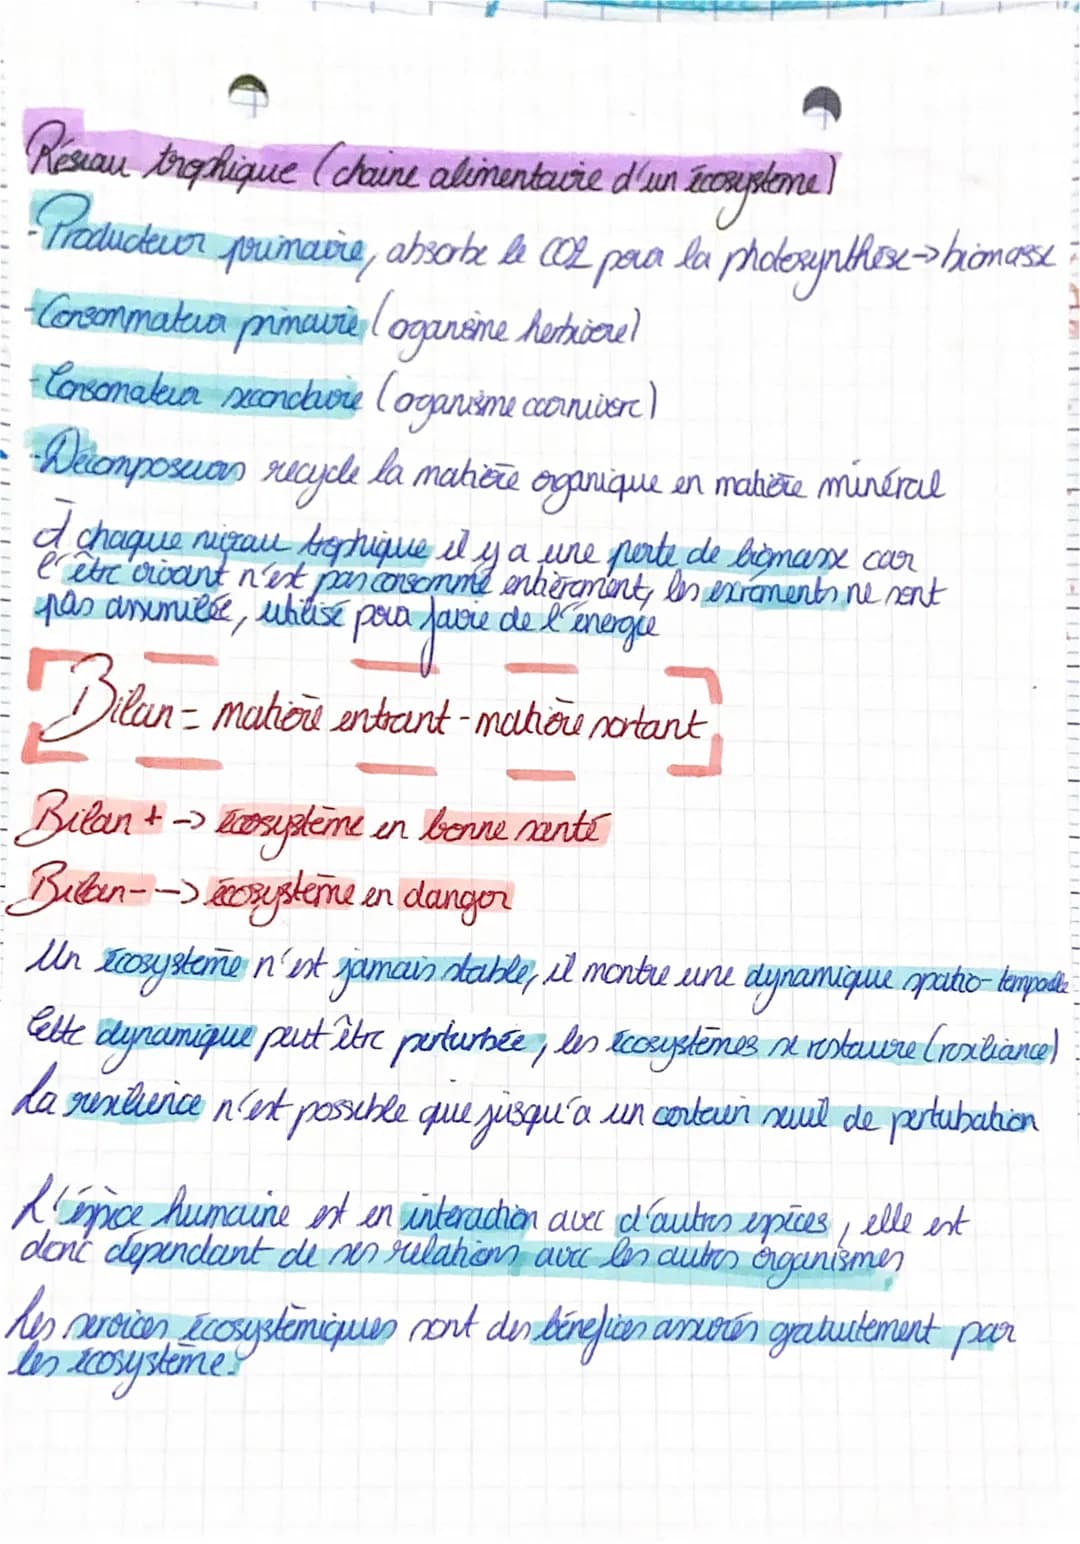 Réseau trophique (chaine alimentaire d'un écosysteme)
- Producteur primaire, absorbe le CO2 pour la photosynthèse -> biomasse
- Consommateur primaire (oganisme herbivore)
- Consomateur secondaire (organisme carnivore)
- Décomposeurs recycle la matière organique en matière minéral
À chaque niveau trophique il y a une perte de biomasse car
l'être vivant n'est pas consommé entièrement, les excréments ne sont
pas assimilée, utilisé pour faire de l'énergie
Bilan = matière entrant - matière sortant
Bilan + -> écosystème en bonne santé
Bilan - -> écosystème en danger
Un écosystème n'est jamais stable, il montre une dynamique spatio-temporelle
Cette dynamique peut être perturbée, les écosystèmes se restaure (resiliance)
La resilience n'est possible que jusqu'a un certain seuil de pertubation
L'éspèce humaine est en interaction avec d'autres espèces, elle est
donc dépendant de ses relations avec les autres organismes
Les services écosystèmiques sont des bénéfices assurés gratuitement par
les écosystème.